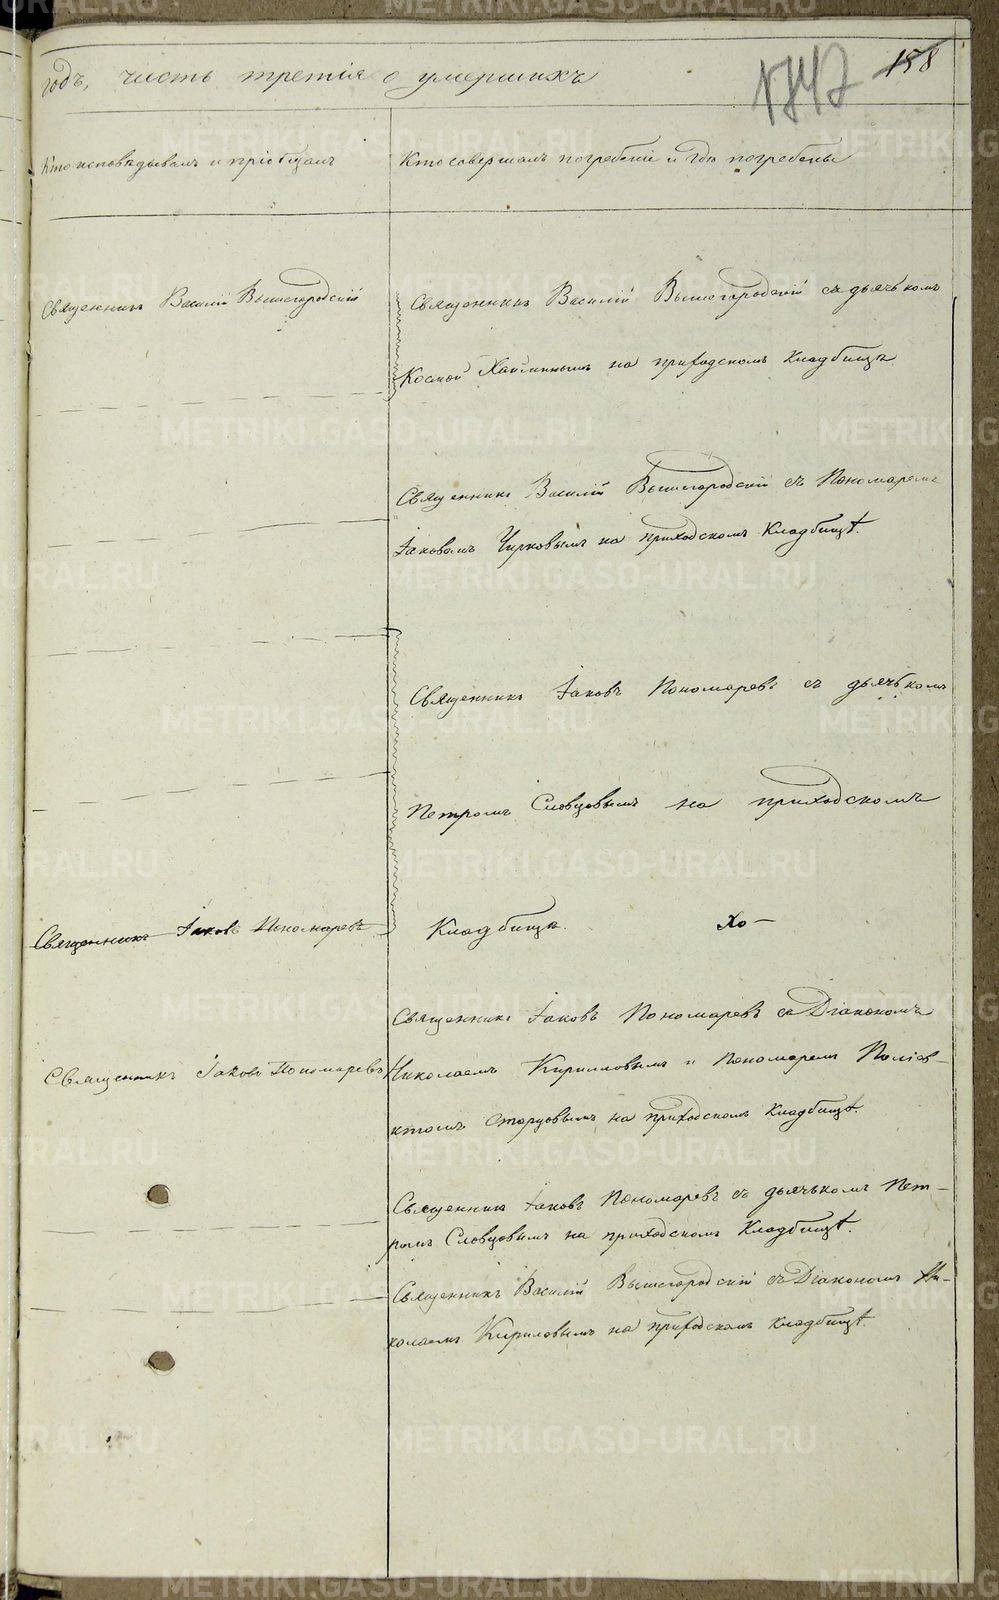 годъ, часть третія о умершихъ
158
Кто исповѣдывалъ и пріобщалъ
Кто совершалъ погребеніе и гдѣ погребены
Священникъ Василій Вышегородскій
Священникъ Василій Вышегородскій съ дьячькомъ
Космой на приходскомъ кладбищѣ
Священникъ Василій Вышегородскій съ Пономаремъ
Іаковомъ Чирковымъ на приходскомъ Кладбищѣ.
Священникъ Іаковъ Пономаревъ съ дьячькомъ
Петромъ Словцовымъ на приходскомъ
Священникъ Іаковъ Пономаревъ
Кладбищѣ.
Священникъ Іаковъ Пономаревъ съ Діакономъ
Священникъ Іаковъ Пономаревъ
Николаемъ Кирилловымъ и Пономаремъ Поліев-
ктомъ Старцовымъ на приходскомъ кладбищѣ.
Священникъ Іаковъ Пономаревъ съ дьячькомъ Пет-
ромъ Словцовымъ на приходскомъ Кладбищѣ.
Священникъ Василій Вышегородскій съ Діакономъ Ни-
колаемъ Кириловымъ на приходскомъ кладбищѣ.
METRIKI.GASO-URAL.RU